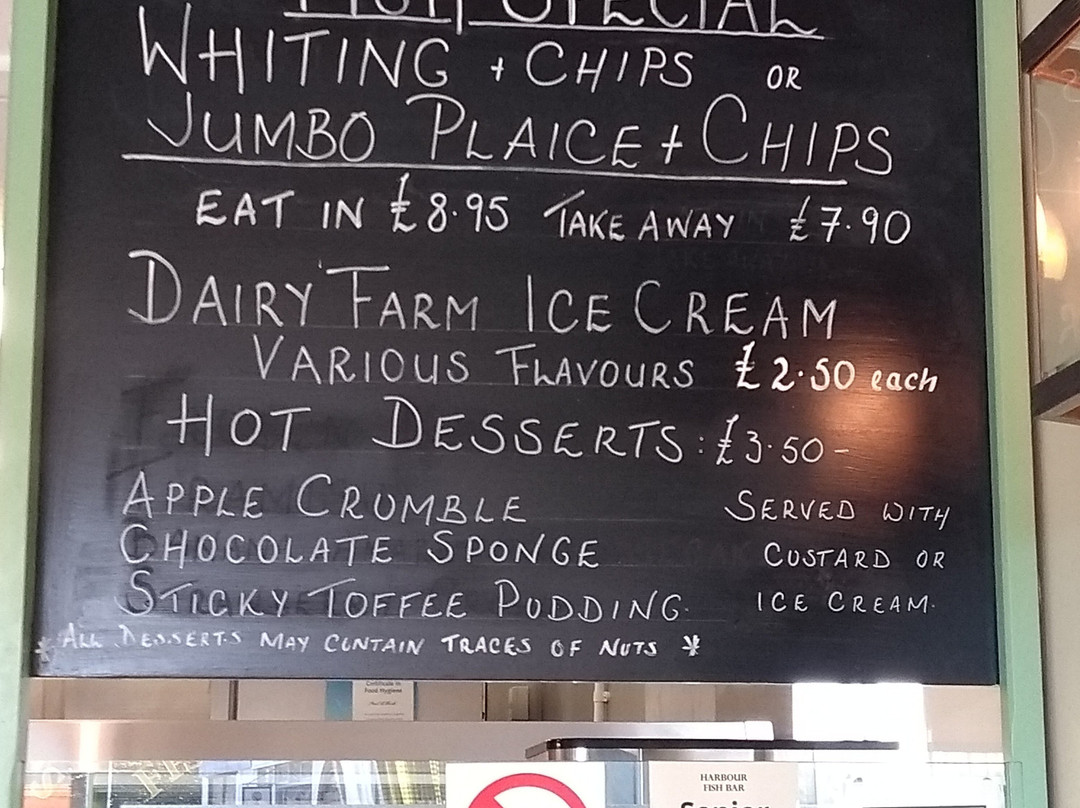 FISH SPECIAL
WHITING + CHIPS OR
JUMBO PLAICE + CHIPS
EAT IN £8.95 TAKE AWAY £7.90
DAIRY FARM ICE CREAM
VARIOUS FLAVOURS £2.50 each
HOT DESSERTS: £3.50-
APPLE CRUMBLE
CHOCOLATE SPONGE
STICKY TOFFEE PUDDING.
SERVED WITH
CUSTARD OR
ICE CREAM.
*ALL DESSERTS MAY CONTAIN TRACES OF NUTS *
Certificate in
Food Hygiene
HARBOUR
FISH BAR
Senior